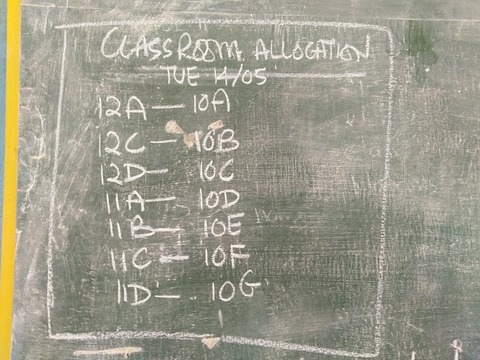 CLASSROOM ALLOCATION
TUE 14/05
12A — 10A
12C — 10B
12D — 10C
11A — 10D
11B — 10E
11C — 10F
11D — 10G